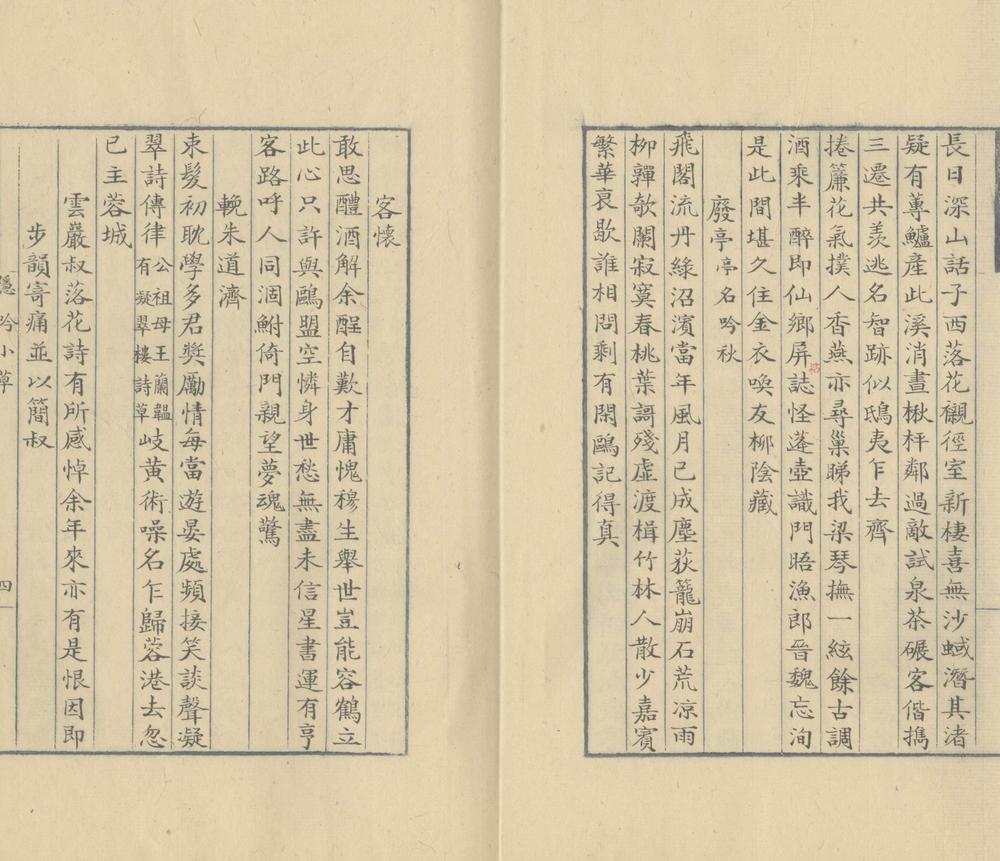 長日深山話子西落花襯徑室新棲喜無沙蜮潛其渚
疑有蓴鱸產此溪消晝楸枰鄰過敵試泉茶碾客偕擕
三遷共羡逃名智跡似鴟夷乍去齊
捲簾花氣撲人香燕亦尋巢睇我梁琴撫一絃餘古調
酒乘半醉即仙鄉屏誌怪蓬壺識門晤漁郎晉魏忘洵
是此間堪久住金衣喚友柳陰藏
廢亭亭名吟秋
飛閣流丹綠沼濱當年風月已成塵荻籠崩石荒凉雨
柳嚲欹闌寂寞春桃葉謌殘虛渡楫竹林人散少嘉賓
繁華衰歇誰相問剩有閑鷗記得真
客懷
敢思醴酒解余酲自歎才庸愧穆生舉世豈能容鶴立
此心只許與鷗盟空憐身世愁無盡未信星書運有亨
客路呼人同涸鮒倚門親望夢魂驚
輓朱道濟
束髮初耽學多君獎勵情每當遊晏處頻接笑談聲凝
翠詩傳律公祖母王蘭韞有凝翠樓詩草岐黃術噪名乍歸蓉港去忽
已主蓉城
雲巖叔落花詩有所感悼余年來亦有是恨因即
步韻寄痛並以簡叔
隱吟小草
四